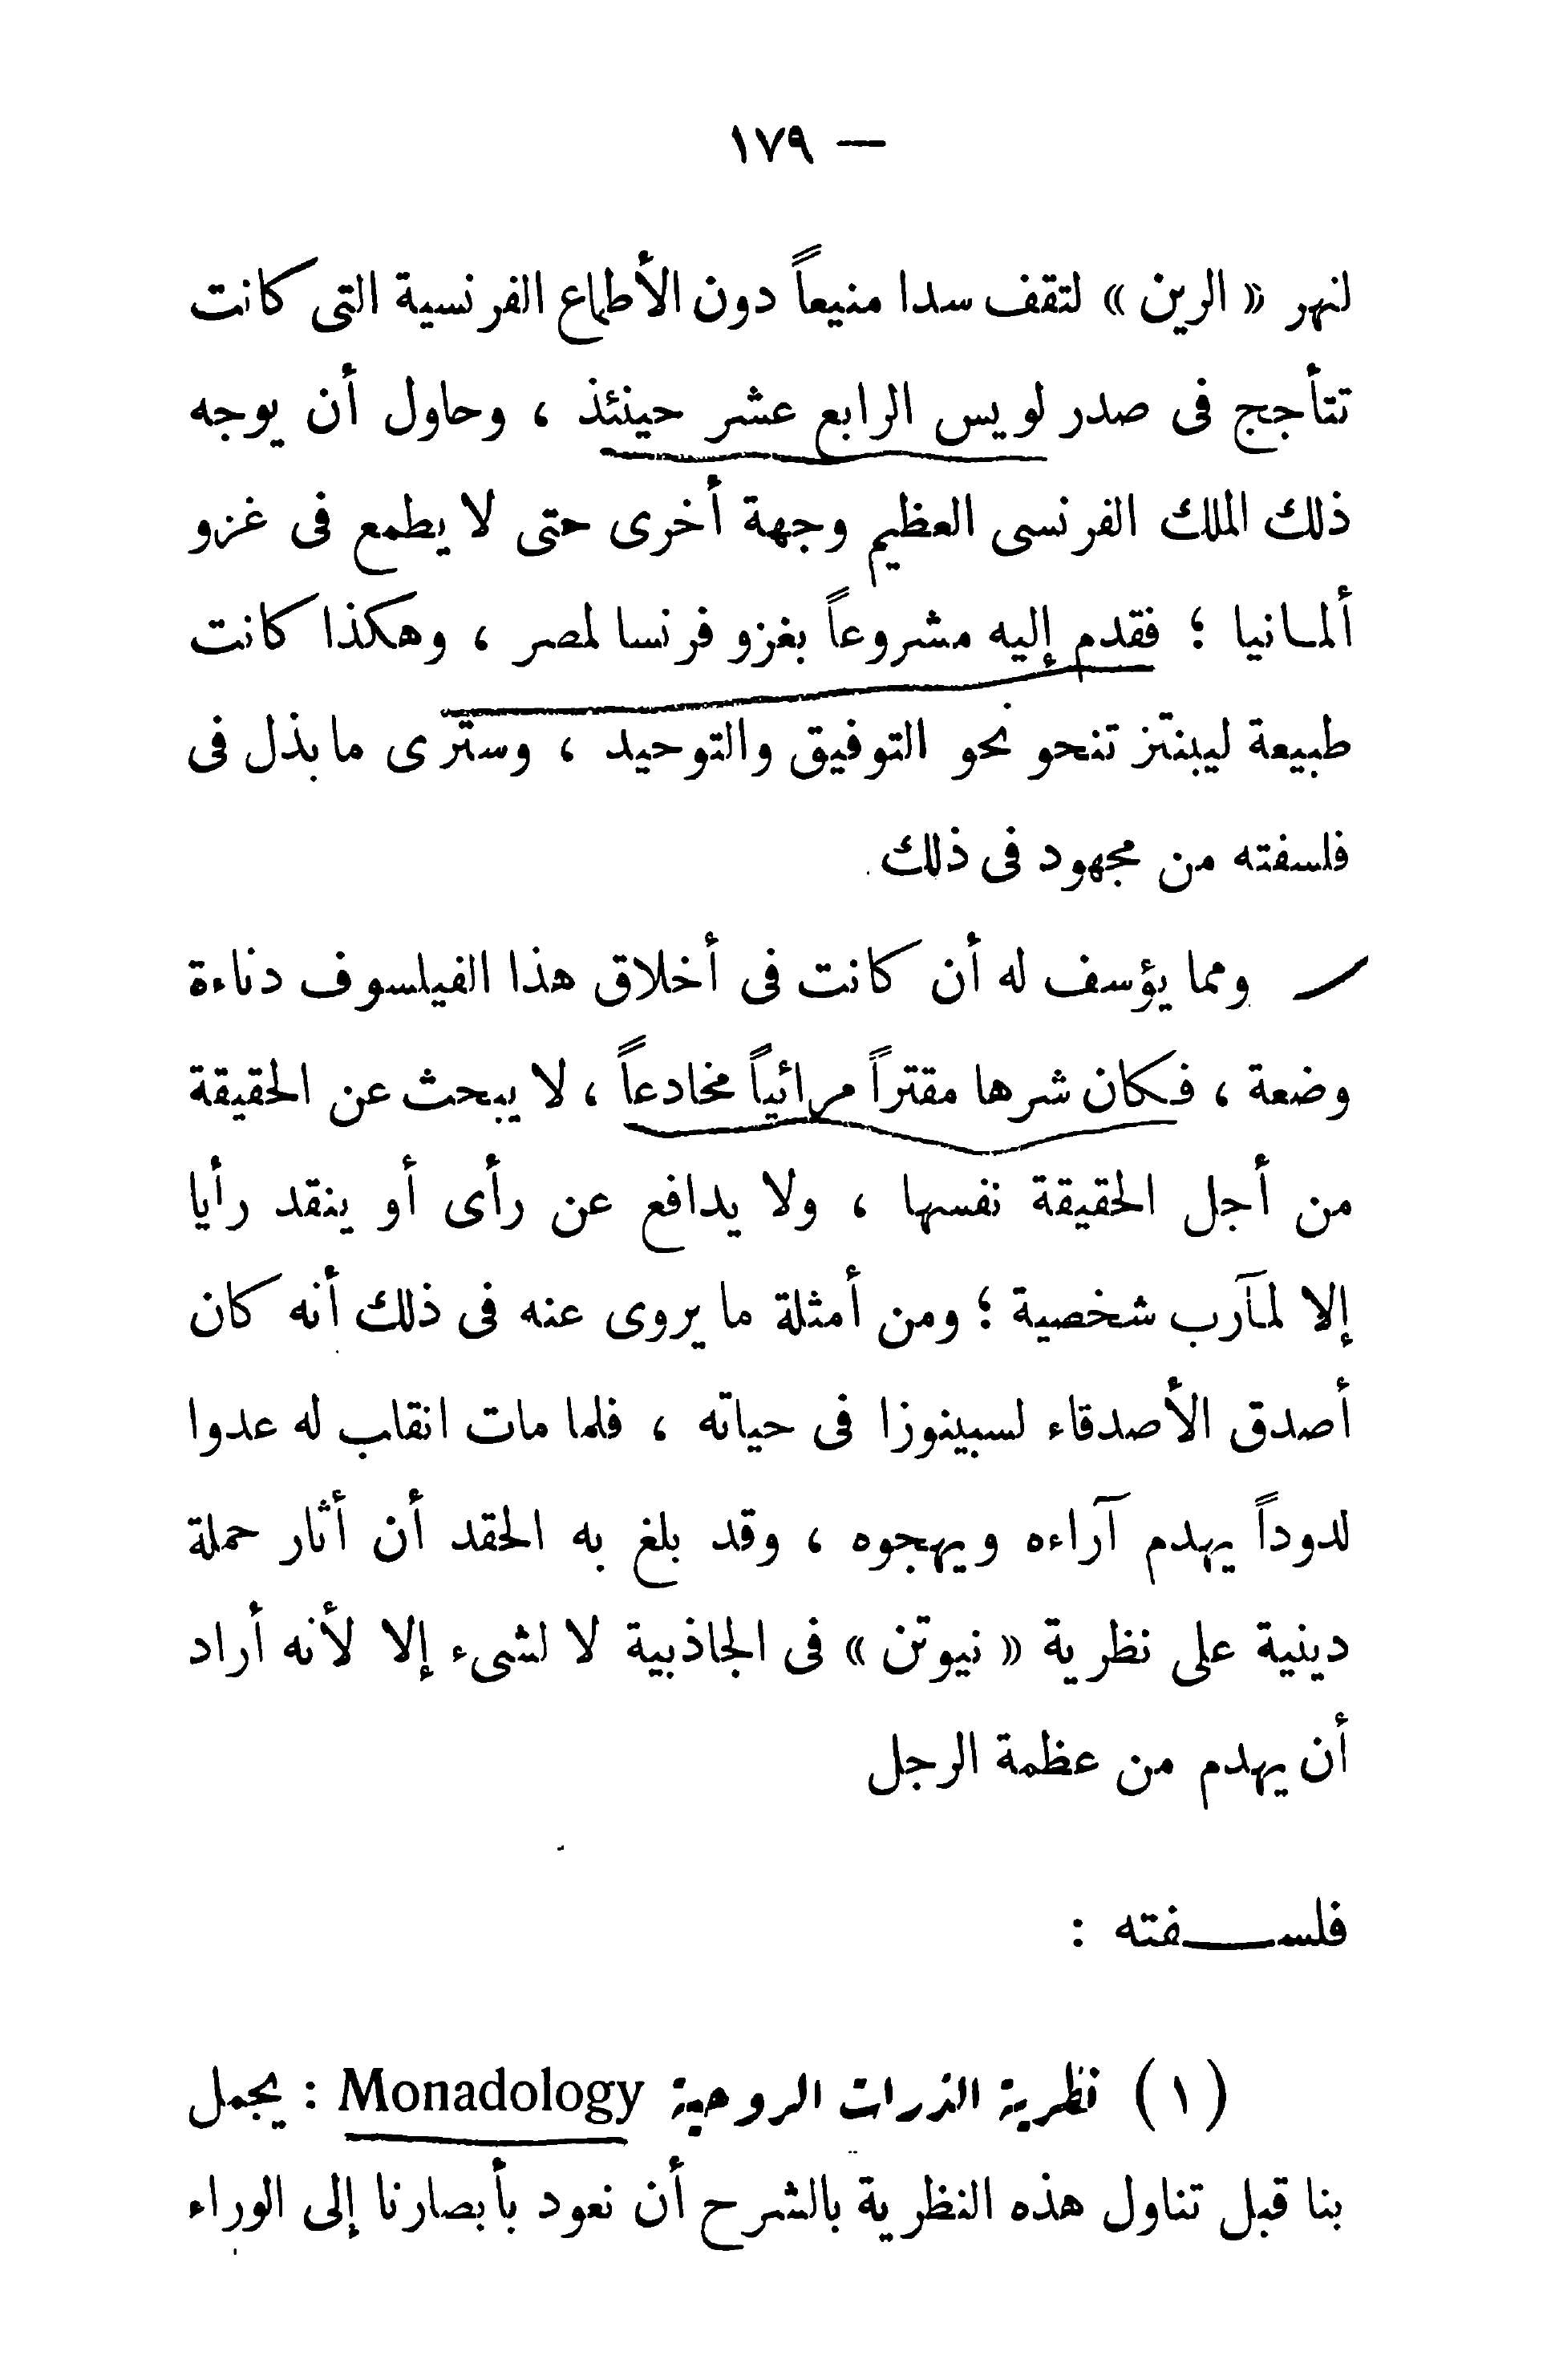 — ١٧٩
لنهر « الرين » لتقف سدا منيعاً دون الأطماع الفرنسية التى كانت
تتأجج فى صدر لويس الرابع عشر حينئذ ، وحاول أن يوجه
ذلك الملك الفرنسى العظيم وجهة أخرى حتى لا يطمع فى غزو
ألمـانيا ؛ فقدم إليه مشروعاً بغزو فرنسا لمصر ، وهكذا كانت
طبيعة ليبنتز تنحو نحو التوفيق والتوحيد ، وسترى ما بذل فى
فلسفته من مجهود فى ذلك
ومما يؤسف له أن كانت فى أخلاق هذا الفيلسوف دناءة
وضعة ، فـكان شرها مقتراً مرائياً مخادعاً ، لا يبحث عن الحقيقة
من أجل الحقيقة نفسها ، ولا يدافع عن رأى أو ينقد رأيا
إلا لمـآرب شخصية ؛ ومن أمثلة ما يروى عنه فى ذلك أنه كان
أصدق الأصدقاء لسبينوزا فى حياته ، فلما مات انقلب له عدوا
لدوداً يهدم آراءه ويهجوه ، وقد بلغ به الحقد أن أثار حملة
دينية على نظرية « نيوتن » فى الجاذبية لا لشىء إلا لأنه أراد
أن يهدم من عظمة الرجل
فلســـفته :
( ١ ) نظرية الذرات الروحية Monadology : يجمل
بنا قبل تناول هذه النظرية بالشرح أن نعود بأبصارنا إلى الوراء